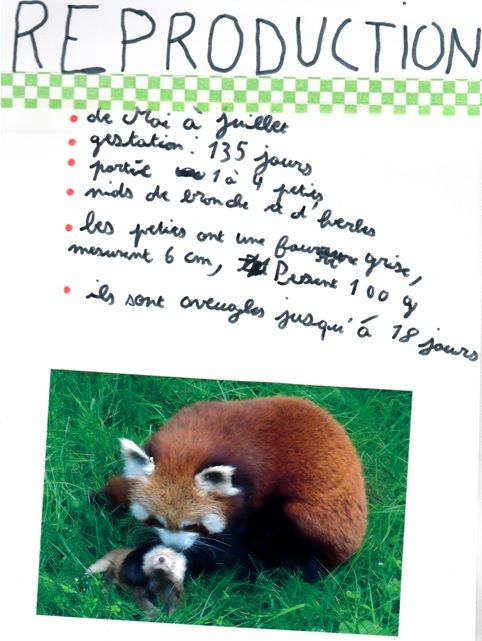 REPRODUCTION
de Mai à juillet
gestation : 135 jours
portée 1 à 4 petits
nids de bronche et d'herbes
Les petits ont une fourrure grise,
mesurent 6 cm, Pesent 100 g
ils sont aveugles jusqu'à 18 jours